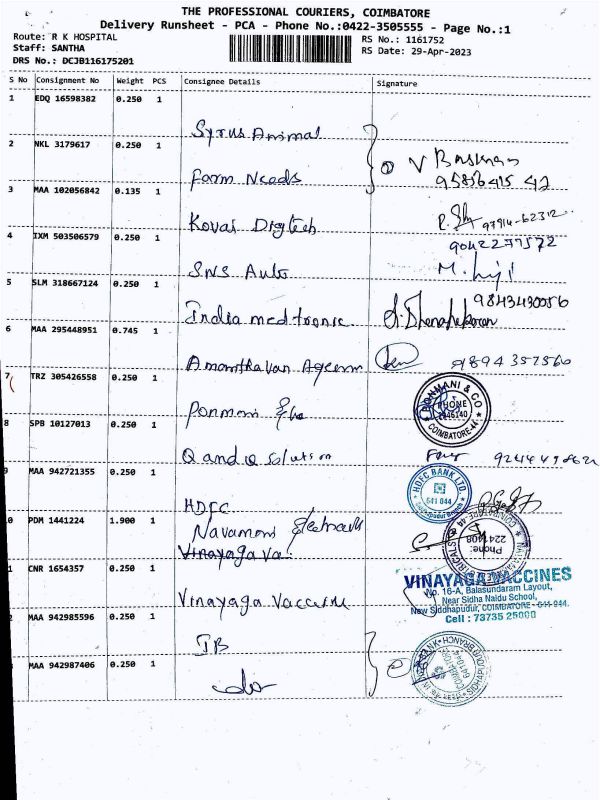 THE PROFESSIONAL COURIERS, COIMBATORE
Delivery Runsheet - PCA - Phone No.:0422-3505555 - Page No.:1
Route: R K HOSPITAL
RS No.: 1161752
Staff: SANTHA
RS Date: 29-Apr-2023
DRS No.: DCJB116175201
S No Consignment No Weight PCS Consignee Details Signature
1 EDQ 16598382 0.250 1
Syrus Animal
2 NKL 3179617 0.250 1
V Baskaran
Farm Needs
9585641542
3 MAA 102056842 0.135 1
Kovai Digitech
97914-62312
4 IXM 503506579 0.250 1
9042277572
SNS Auto
5 SLM 318667124 0.250 1
9843430056
India medtronic
6 MAA 295448951 0.745 1
Amonthavan Agecem
9894357560
7 TRZ 305426558 0.250 1
PONMANI & CO
PHONE
COIMBATORE-44
Ponmani &co
8 SPB 10127013 0.250 1
Q and Q Solution
9 MAA 942721355 0.250 1
HDFC BANK LTD
641 044
HDFC
10 PDM 1441224 1.900 1
Navamani
Phone:
Vinayaga Va
1 CNR 1654357 0.250 1
VINAYAGA VACCINES
No. 16-A, Balasundaram Layout,
Near Sidha Naidu School,
New Siddhapudur, COIMBATORE - 641 044.
Cell : 73735 25000
Vinayaga Vaccine
2 MAA 942985596 0.250 1
IB
MAA 942987406 0.250 1